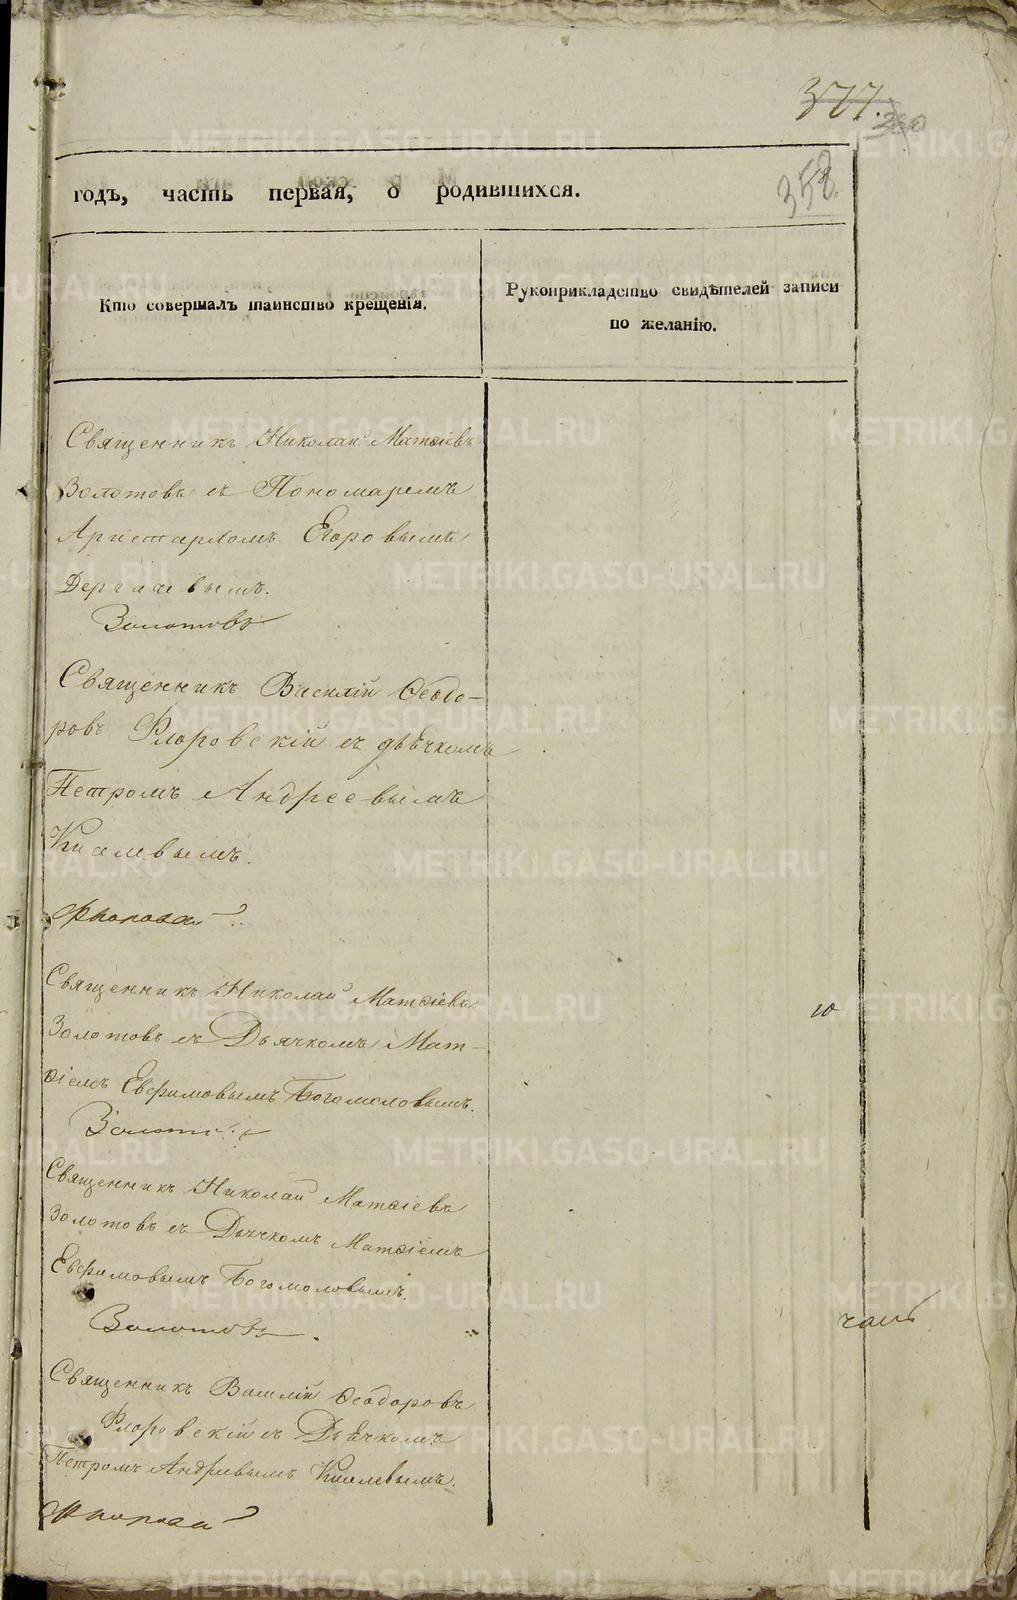 377.
358.
годъ, часть первая, о родившихся.
Кто совершалъ таинство крещенія.
Рукоприкладство свидѣтелей записи
по желанію.
Священникъ Николай Матѳіевъ
Золотовъ съ Пономаремъ
Аристархомъ Егоровымъ
Дергачевымъ.
Золотовъ
Священникъ Василій Ѳеодо-
ровъ Флоровскій съ дьячкомъ
Петромъ Андреевымъ
Киселевымъ.
Священникъ Николай Матѳіевъ
Золотовъ съ Дьячкомъ Мат-
ѳіемъ Евфимовымъ Богомоловымъ.
Золотовъ
10
Священникъ Николай Матѳіевъ
Золотовъ съ Дьячкомъ Матѳіемъ
Евфимовымъ Богомоловымъ.
Золотовъ.
часть
Священникъ Василій Ѳеодоровъ
Флоровскій съ Дьячкомъ
Петромъ Андреевымъ Киселевымъ.
METRIKI.GASO-URAL.RU